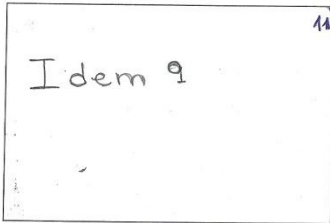 11
Idem 9